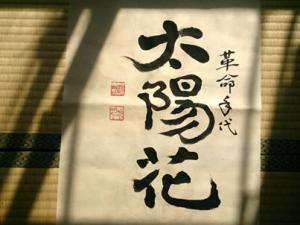 太陽花
革命年代